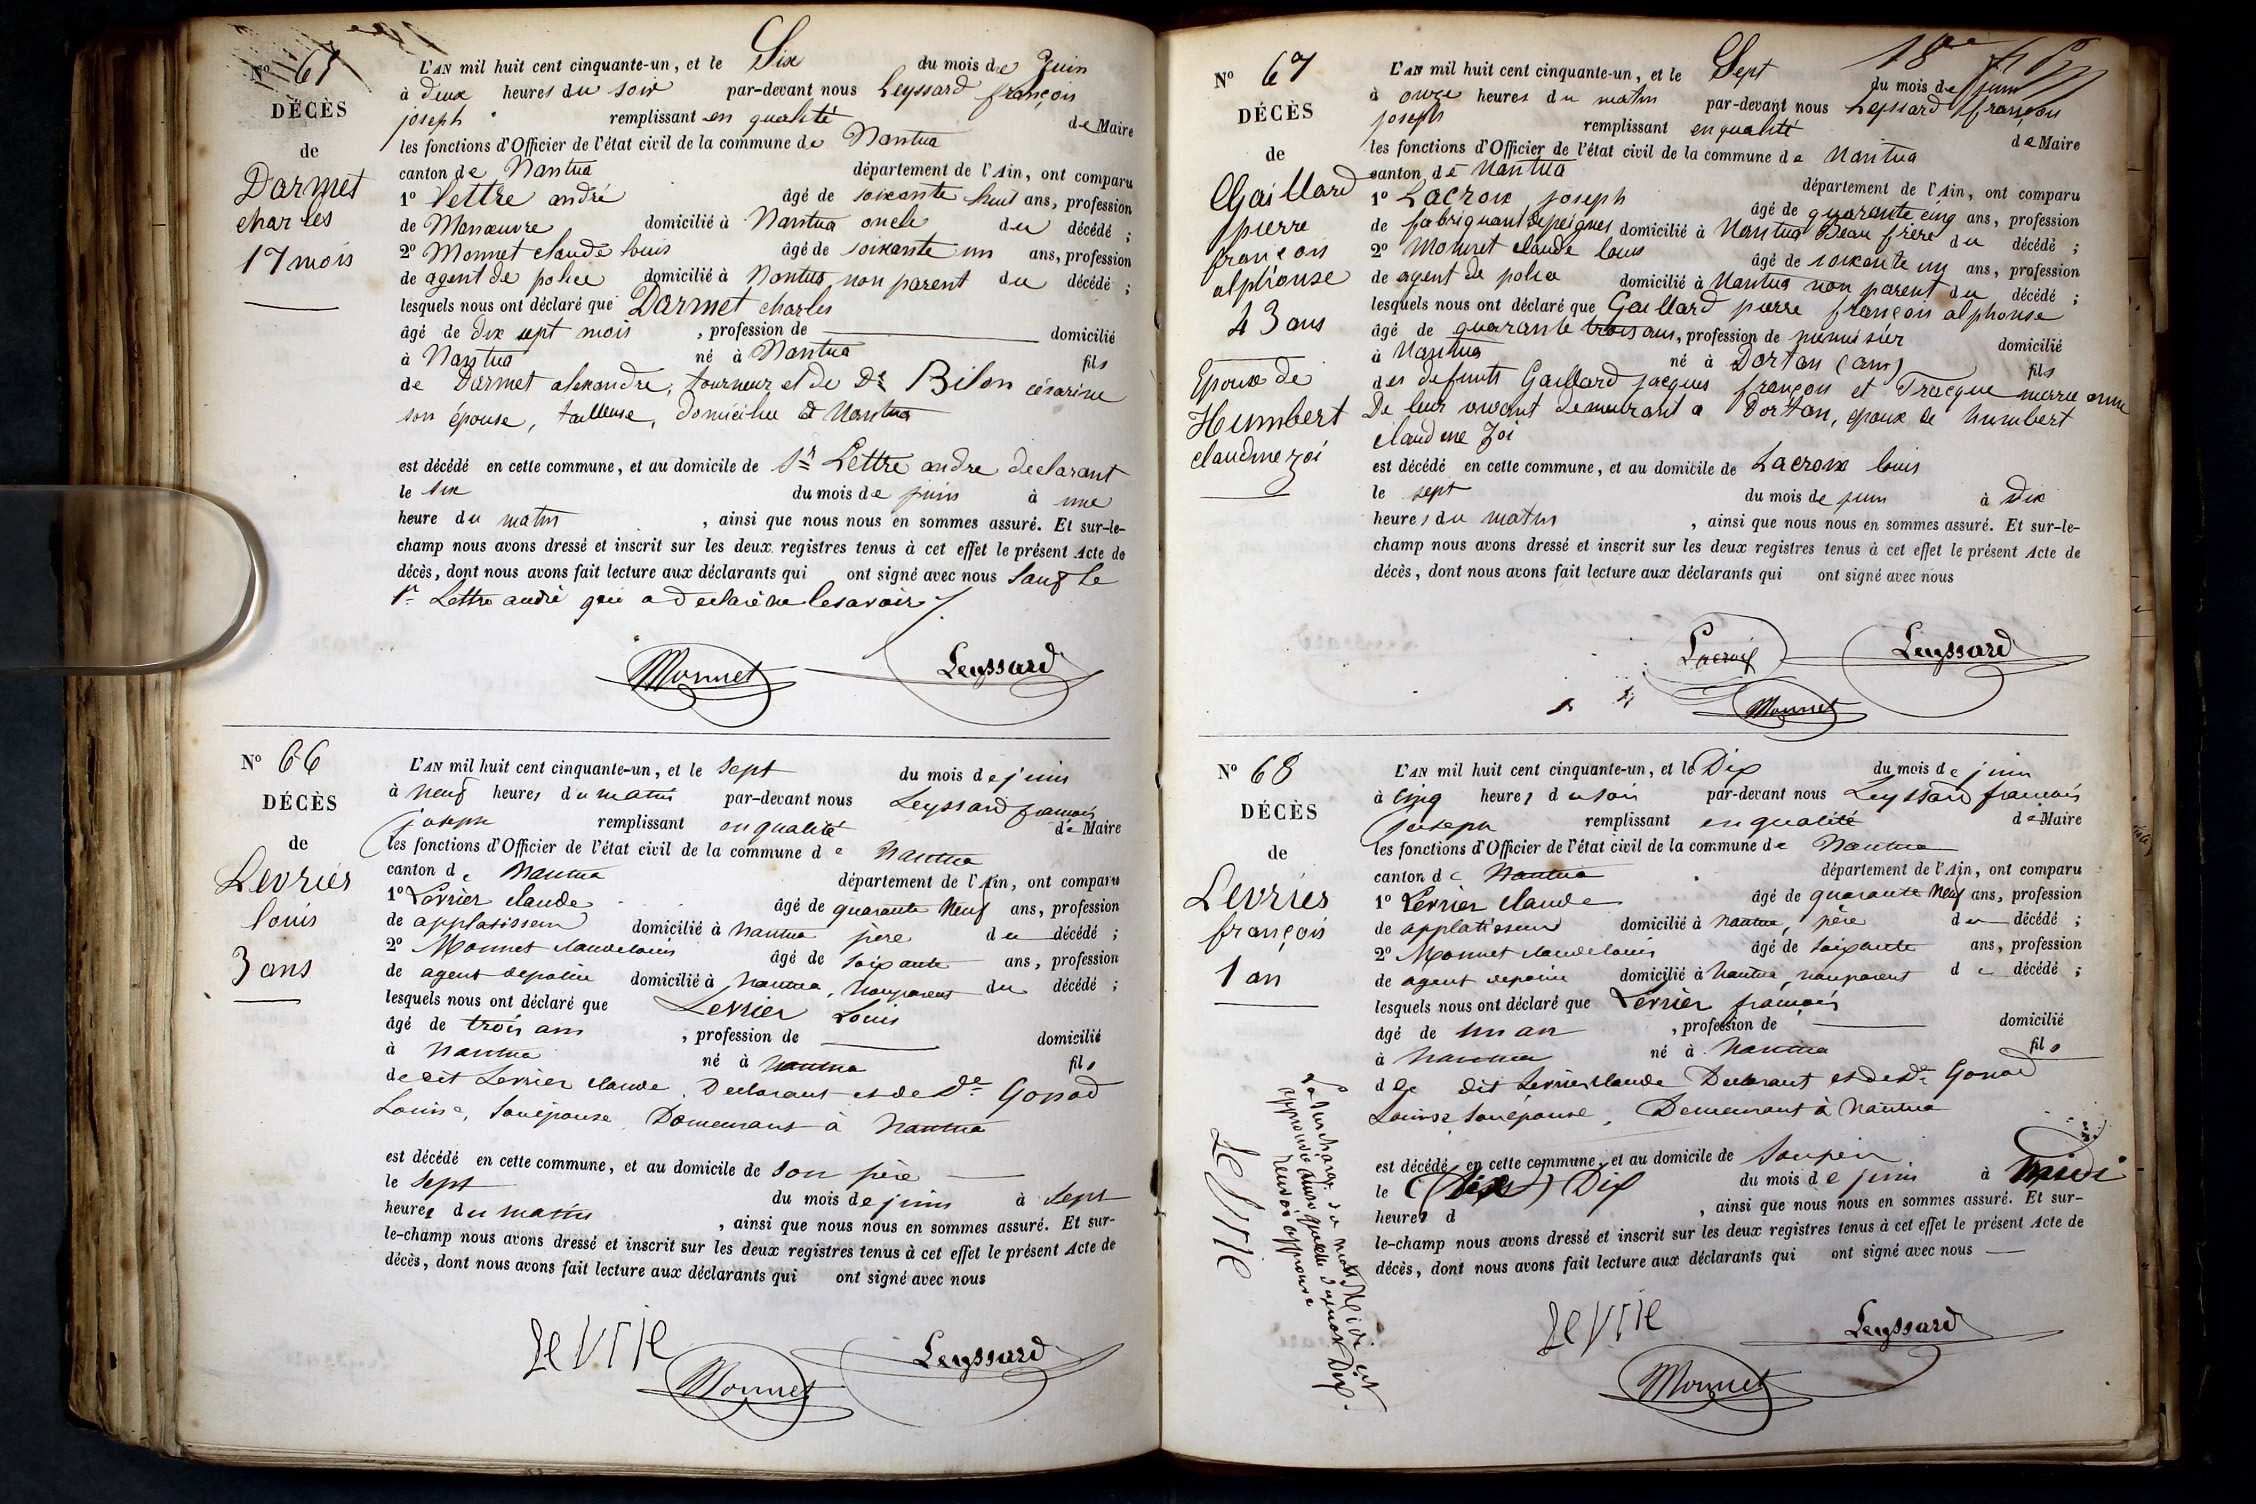 N° 65
DÉCÈS
de
Darmet
charles
17 mois
L'AN mil huit cent cinquante-un, et le Six du mois de Juin
à deux heures du soir par-devant nous Leyssard françois
joseph remplissant en qualité de Maire
les fonctions d'Officier de l'état civil de la commune de Nantua
canton de Nantua département de l'Ain, ont comparu
1° Lettre andré âgé de soixante huit ans, profession
de Manœuvre domicilié à Nantua oncle du décédé ;
2° Monnet claude louis âgé de soixante un ans, profession
de agent de police domicilié à Nantua non parent du décédé ;
lesquels nous ont déclaré que Darmet charles
âgé de dix sept mois , profession de domicilié
à Nantua né à Nantua fils
de Darmet alexandre, tourneur et de De Bilon césarine
son épouse, tailleuse, domiciliée à Nantua
est décédé en cette commune, et au domicile de Sr Lettre andre declarant
le six du mois de juin à une
heure du matin , ainsi que nous nous en sommes assuré. Et sur-le-
champ nous avons dressé et inscrit sur les deux registres tenus à cet effet le présent Acte de
décès, dont nous avons fait lecture aux déclarants qui ont signé avec nous sauf le
Sr Lettre andré qui a declaré ne le savoir
Monnet Leyssard
N° 66
DÉCÈS
de
Levrier
louis
3 ans
L'AN mil huit cent cinquante-un, et le sept du mois de juin
à neuf heures du matin par-devant nous Leyssard françois
joseph remplissant en qualité de Maire
les fonctions d'Officier de l'état civil de la commune de Nantua
canton de Nantua département de l'Ain, ont comparu
1° Levrier claude âgé de quarante neuf ans, profession
de applatisseur domicilié à Nantua père du décédé ;
2° Monnet claude louis âgé de soixante ans, profession
de agent de police domicilié à Nantua, non parent du décédé ;
lesquels nous ont déclaré que Levrier Louis
âgé de trois ans , profession de domicilié
à Nantua né à Nantua fils
de dit Levrier claude Declarant et de De Gonod
Louise, son épouse Demeurant à Nantua
est décédé en cette commune, et au domicile de son père
le sept du mois de juin à sept
heures du matin , ainsi que nous nous en sommes assuré. Et sur-
le-champ nous avons dressé et inscrit sur les deux registres tenus à cet effet le présent Acte de
décès, dont nous avons fait lecture aux déclarants qui ont signé avec nous
LeVrie Monnet Leyssard
N° 67
DÉCÈS
de
Gaillard
pierre
françois
alphonse
43 ans
Epoux de
Humbert
claudine zoé
L'AN mil huit cent cinquante-un, et le Sept du mois de juin
à onze heures du matin par-devant nous Leyssard françois
joseph remplissant en qualité de Maire
les fonctions d'Officier de l'état civil de la commune de Nantua
canton de Nantua département de l'Ain, ont comparu
1° Lacroix joseph âgé de quarante cinq ans, profession
de fabriquant de peignes domicilié à Nantua Beau frère du décédé ;
2° Monnet claude louis âgé de soixante un ans, profession
de agent de police domicilié à Nantua non parent du décédé ;
lesquels nous ont déclaré que Gaillard pierre françois alphonse
âgé de quarante trois ans, profession de menuisier domicilié
à Nantua né à Dortan (ain) fils
des defunts Gaillard jacques françois et Tracque marie anne
De leur vivant demeurant a Dortan, epoux de humbert
claudine Zoé
est décédé en cette commune, et au domicile de Lacroix louis
le sept du mois de juin à dix
heures du matin , ainsi que nous nous en sommes assuré. Et sur-le-
champ nous avons dressé et inscrit sur les deux registres tenus à cet effet le présent Acte de
décès, dont nous avons fait lecture aux déclarants qui ont signé avec nous
Lacroix Leyssard
Monnet
N° 68
DÉCÈS
de
Levrier
françois
1 an
L'AN mil huit cent cinquante-un, et le Dix du mois de juin
à cinq heures du soir par-devant nous Leyssard françois
joseph remplissant en qualité de Maire
les fonctions d'Officier de l'état civil de la commune de Nantua
canton de Nantua département de l'Ain, ont comparu
1° Levrier claude âgé de quarante neuf ans, profession
de applatisseur domicilié à Nantua, père du décédé ;
2° Monnet claude louis âgé de soixante ans, profession
de agent de police domicilié à Nantua, non parent du décédé ;
lesquels nous ont déclaré que Levrier françois
âgé de un an , profession de domicilié
à Nantua né à Nantua fils
de dit Levrier claude Declarant et de De Gonod
Louise son épouse, Demeurant à Nantua
est décédé en cette commune, et au domicile de son père
le Dix du mois de juin à midi
heures d , ainsi que nous nous en sommes assuré. Et sur-
le-champ nous avons dressé et inscrit sur les deux registres tenus à cet effet le présent Acte de
décès, dont nous avons fait lecture aux déclarants qui ont signé avec nous
LeVrie Leyssard
Monnet
La surcharge du mot Midi est
approuvée ainsi que celle du mot Dix.
renvoi approuvé
LeVrie